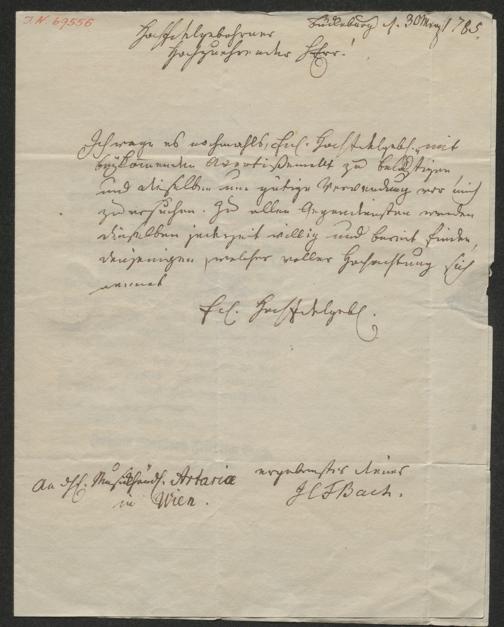 I.N. 69556
Bückeburg d. 30 May 1785.
HochEdelgebohrner
Hochzuehrender Herr!
Ich wage es nochmahls, Ew. HochEdelgeb. mit
beykommenden Avertissement zu belästigen
und dieselben um gütige Verwendung vor mich
zu ersuchen. Zu allen Gegendiensten werden
dieselben jederzeit willig und bereit finden
denjenigen, welcher voller Hochachtung sich
nennet
Ew. HochEdelgeb.
ergebenster Diener
JCFBach.
An die H. Musikhändl. Artaria
in Wien.